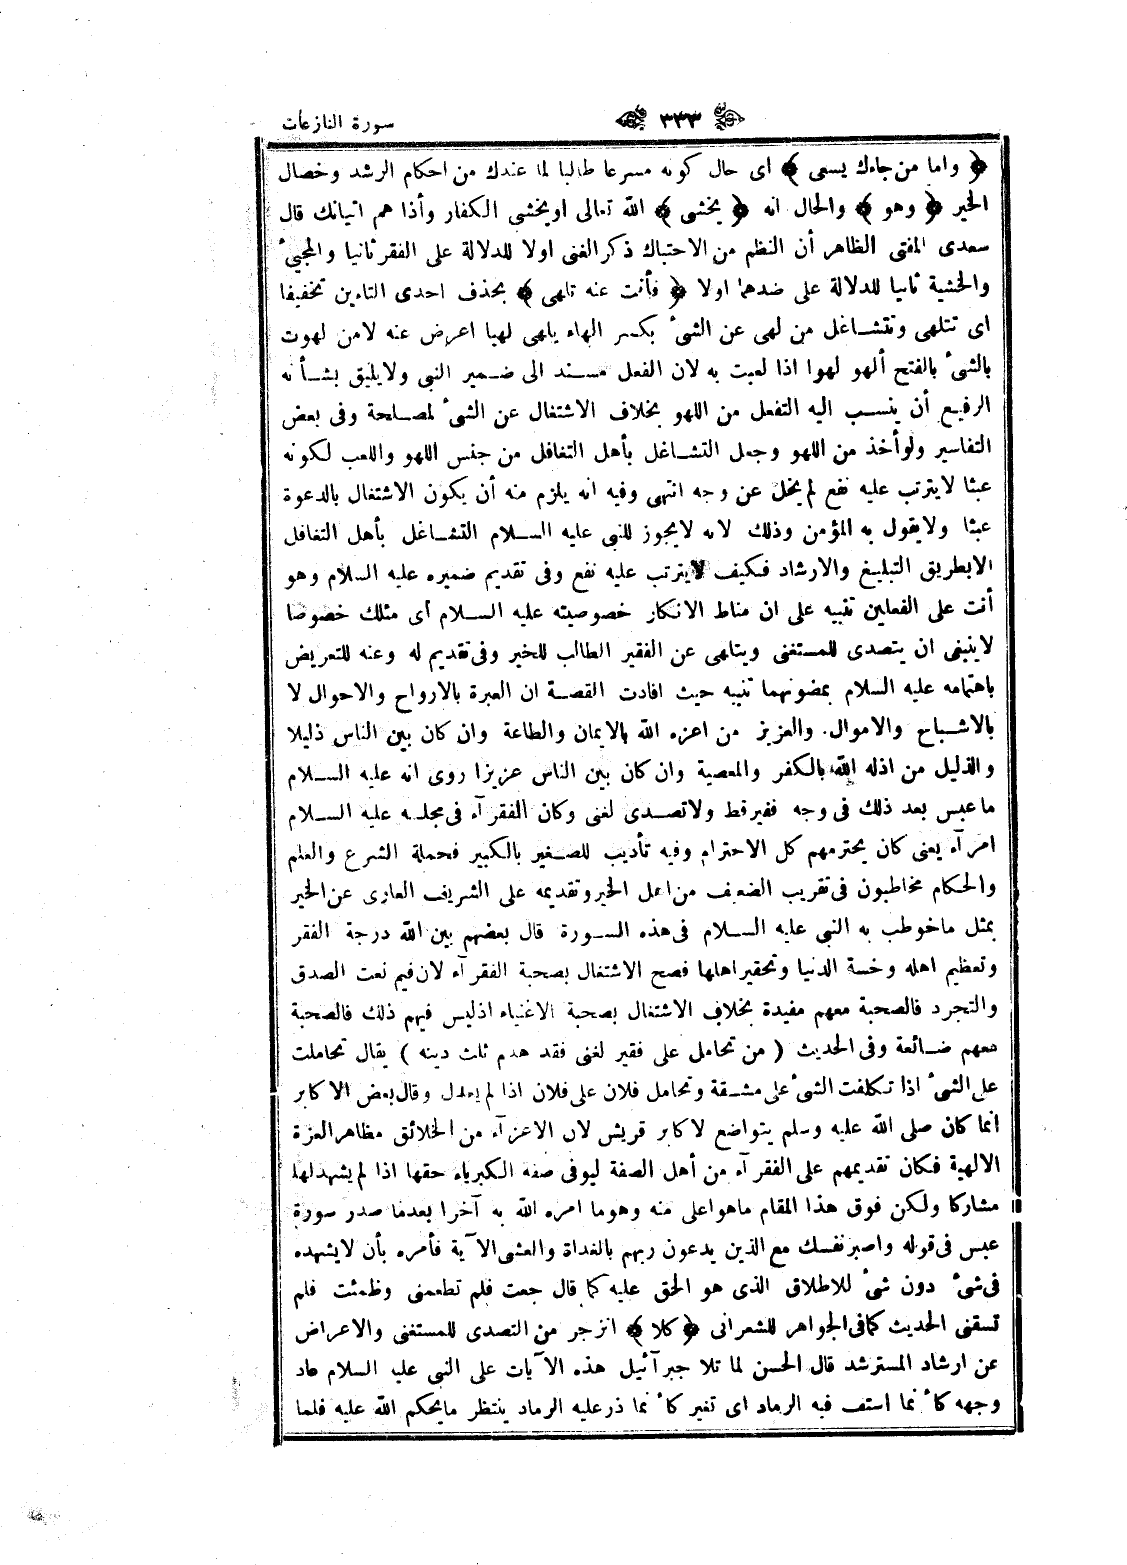 سورة النازعات
٣٣٣
﴿ واما من جاءك يسعى ﴾ اى حال كونه مسرعا طالبا لما عندك من احكام الرشد وخصال
الخير ﴿ وهو ﴾ والحال انه ﴿ يخشى ﴾ الله تعالى اويخشى الكفار وأذا هم اتيانك قال
سعدى المفتى الظاهر أن النظم من الاحتباك ذكر الغنى اولا للدلالة على الفقر ثانيا والمجيئ
والخشية ثانيا للدلالة على ضدهما اولا ﴿ فأنت عنه تلهى ﴾ بحذف احدى التاءين تخفيفا
اى تتلهى وتتشاغل من لهى عن الشئ بكسر الهاء يلهى لهيا اعرض عنه لامن لهوت
بالشئ بالفتح ألهو لهوا اذا لعبت به لان الفعل مسند الى ضمير النبى ولايليق بشأنه
الرفيع أن ينسب اليه التفعل من اللهو بخلاف الاشتغال عن الشئ لمصلحة وفى بعض
التفاسير ولوأخذ من اللهو وجعل التشاغل بأهل التغافل من جنس اللهو واللعب لكونه
عبثا لايترتب عليه نفع لم يخل عن وجه انتهى وفيه انه يلزم منه أن يكون الاشتغال بالدعوة
عبثا ولايقول به المؤمن وذلك لانه لايجوز للنبى عليه السلام التشاغل بأهل التغافل
الابطريق التبليغ والارشاد فكيف لايترتب عليه نفع وفى تقديم ضميره عليه السلام وهو
أنت على الفعلين تنبيه على ان مناط الانكار خصوصيته عليه السلام أى مثلك خصوصا
لاينبغى ان يتصدى للمستغنى ويتلهى عن الفقير الطالب للخير وفى تقديم له وعنه للتعريض
باهتمامه عليه السلام بمضونهما تنبيه حيث افادت القصة ان العبرة بالارواح والاحوال لا
بالاشباح والاموال. والعزيز من اعزه الله بالايمان والطاعة وان كان بين الناس ذليلا
والذليل من اذله الله بالكفر والمعصية وان كان بين الناس عزيزا روى انه عليه السلام
ماعبس بعد ذلك فى وجه فقير قط ولاتصدى لغنى وكان الفقرآء فى مجلسه عليه السلام
امرآء يعنى كان يحترمهم كل الاحترام وفيه تأديب للصغير بالكبير فحملة الشرع والعلم
والحكام مخاطبون فى تقريب الضعيف من اهل الخير وتقديمه على الشريف العارى عن الخير
بمثل ماخوطب به النبى عليه السلام فى هذه السورة قال بعضهم بين الله درجة الفقر
وتعظيم اهله وخسة الدنيا وتحقير اهلها فصح الاشتغال بصحبة الفقرآء لان فيهم نعت الصدق
والتجرد فالصحبة معهم مفيدة بخلاف الاشتغال بصحبة الاغنياء اذليس فيهم ذلك فالصحبة
معهم ضائعة وفى الحديث ( من تحامل على فقير لغنى فقد هدم ثلث دينه ) يقال تحاملت
على الشئ اذا تكلفت الشئ على مشقة وتحامل فلان على فلان اذا لم يعدل وقال بعض الاكابر
انما كان صلى الله عليه وسلم يتواضع لاكابر قريش لان الاعزآء من الخلائق مظاهر العزة
الالهية فكان تقديمهم على الفقرآء من أهل الصفة ليوفى صفة الكبرياء حقها اذا لم يشهدلها
مشاركا ولكن فوق هذا المقام ماهواعلى منه وهوما امره الله به آخرا بعدما صدر سورة
عبس فى قوله واصبر نفسك مع الذين يدعون ربهم بالغداة والعشى الآية فأمره بأن لايشهده
فى شئ دون شئ للاطلاق الذى هو الحق عليه كما قال جعت فلم تطعمنى وظمئت فلم
تسقنى الحديث كمافى الجواهر للشعرانى ﴿ كلا ﴾ انزجر من التصدى للمستغنى والاعراض
عن ارشاد المسترشد قال الحسن لما تلا جبرآئيل هذه الآيات على النبى عليه السلام عاد
وجهه كأنما استف فيه الرماد اى تغير كأنما ذر عليه الرماد ينتظر مايحكم الله عليه فلما